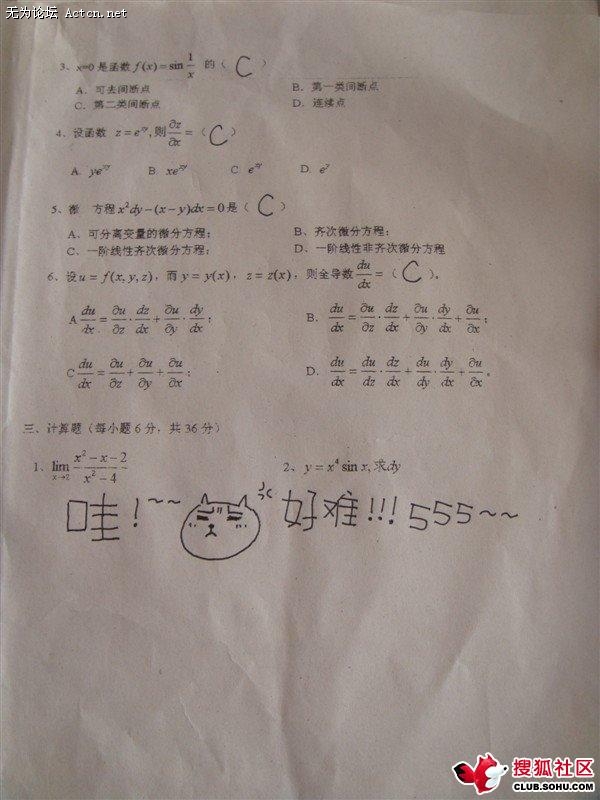 无为论坛 Actcn.net
3、x=0 是函数 f(x)=sin 1/x 的（ C ）
A．可去间断点 B．第一类间断点
C．第二类间断点 D．连续点
4．设函数 z=e^{xy}, 则 ∂z/∂x =（ C ）
A. ye^{xy} B. xe^{xy} C. e^{xy} D. e^{y}
5、微 方程 x²dy-(x-y)dx=0 是（ C ）
A、可分离变量的微分方程； B、齐次微分方程；
C、一阶线性齐次微分方程； D、一阶线性非齐次微分方程
6、设 u=f(x,y,z)，而 y=y(x)，z=z(x)，则全导数 du/dx =（ C ）。
A du/dx = ∂u/∂z · dz/dx + ∂u/∂y · dy/dx； B． du/dx = ∂u/∂z · dz/dx + ∂u/∂y · dy/dx + ∂u/∂x；
C du/dx = ∂u/∂z + ∂u/∂y + ∂u/∂x； D． du/dx = du/dz · dz/dx + du/dy · dy/dx + ∂u/∂x。
三、计算题（每小题 6 分，共 36 分）
1、lim x→2 (x²-x-2)/(x²-4) 2、y=x⁴ sin x, 求dy
哇！~~ 好难!!! 555~~
搜狐社区
CLUB.SOHU.COM